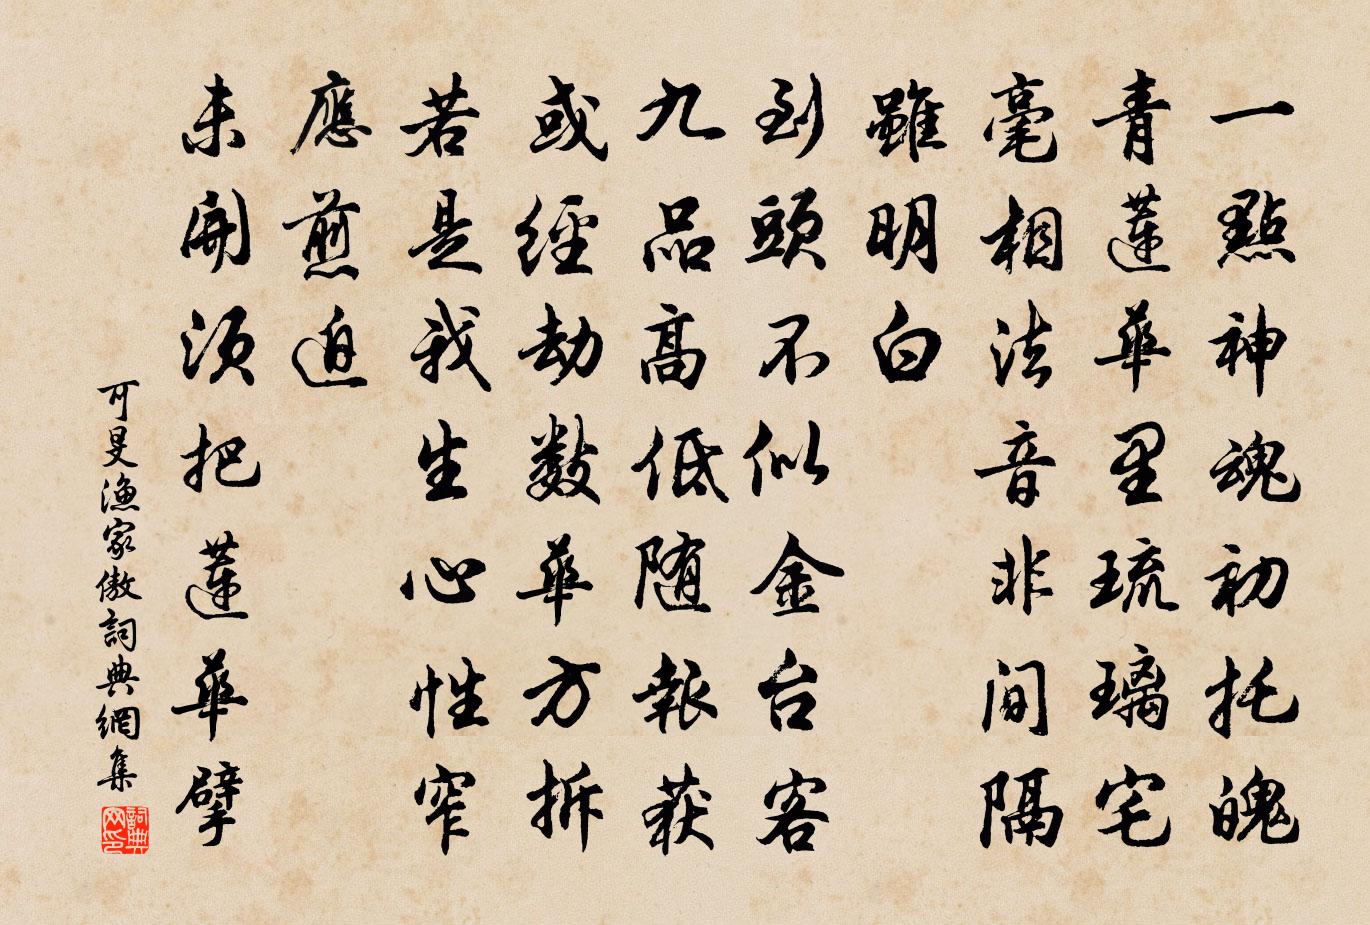 一點神魂初托魄
青蓮華里琉璃宅
毫相法音非间隔
雖明白
到頭不似金台客
九品高低随報获
或經劫數華方拆
若是我生心性窄
應煎迫
未開须把蓮華擘
可旻漁家傲詞典網集
詞典網印